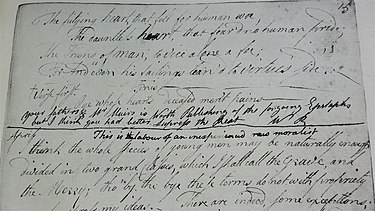 The pitying heart that felt for human woe,
The dauntless heart that fear'd no human pride;
The friend of man, to vice alone a foe;
For ev'n his failings lean'd to virtue's side
first
whose hearts deceased merit pains
Mr Muir's is worth Publishing of the foregoing Epitaphs
but I think you had better suppress the rest
This is the labour of an unexperienced raw moralist
think the whole species of young men may be naturally enough
divided in two grand Classes, which I shall call the Grave and
the Merry; tho' by the bye these terms do not with propriety
express my ideas. There are indeed some exceptions;